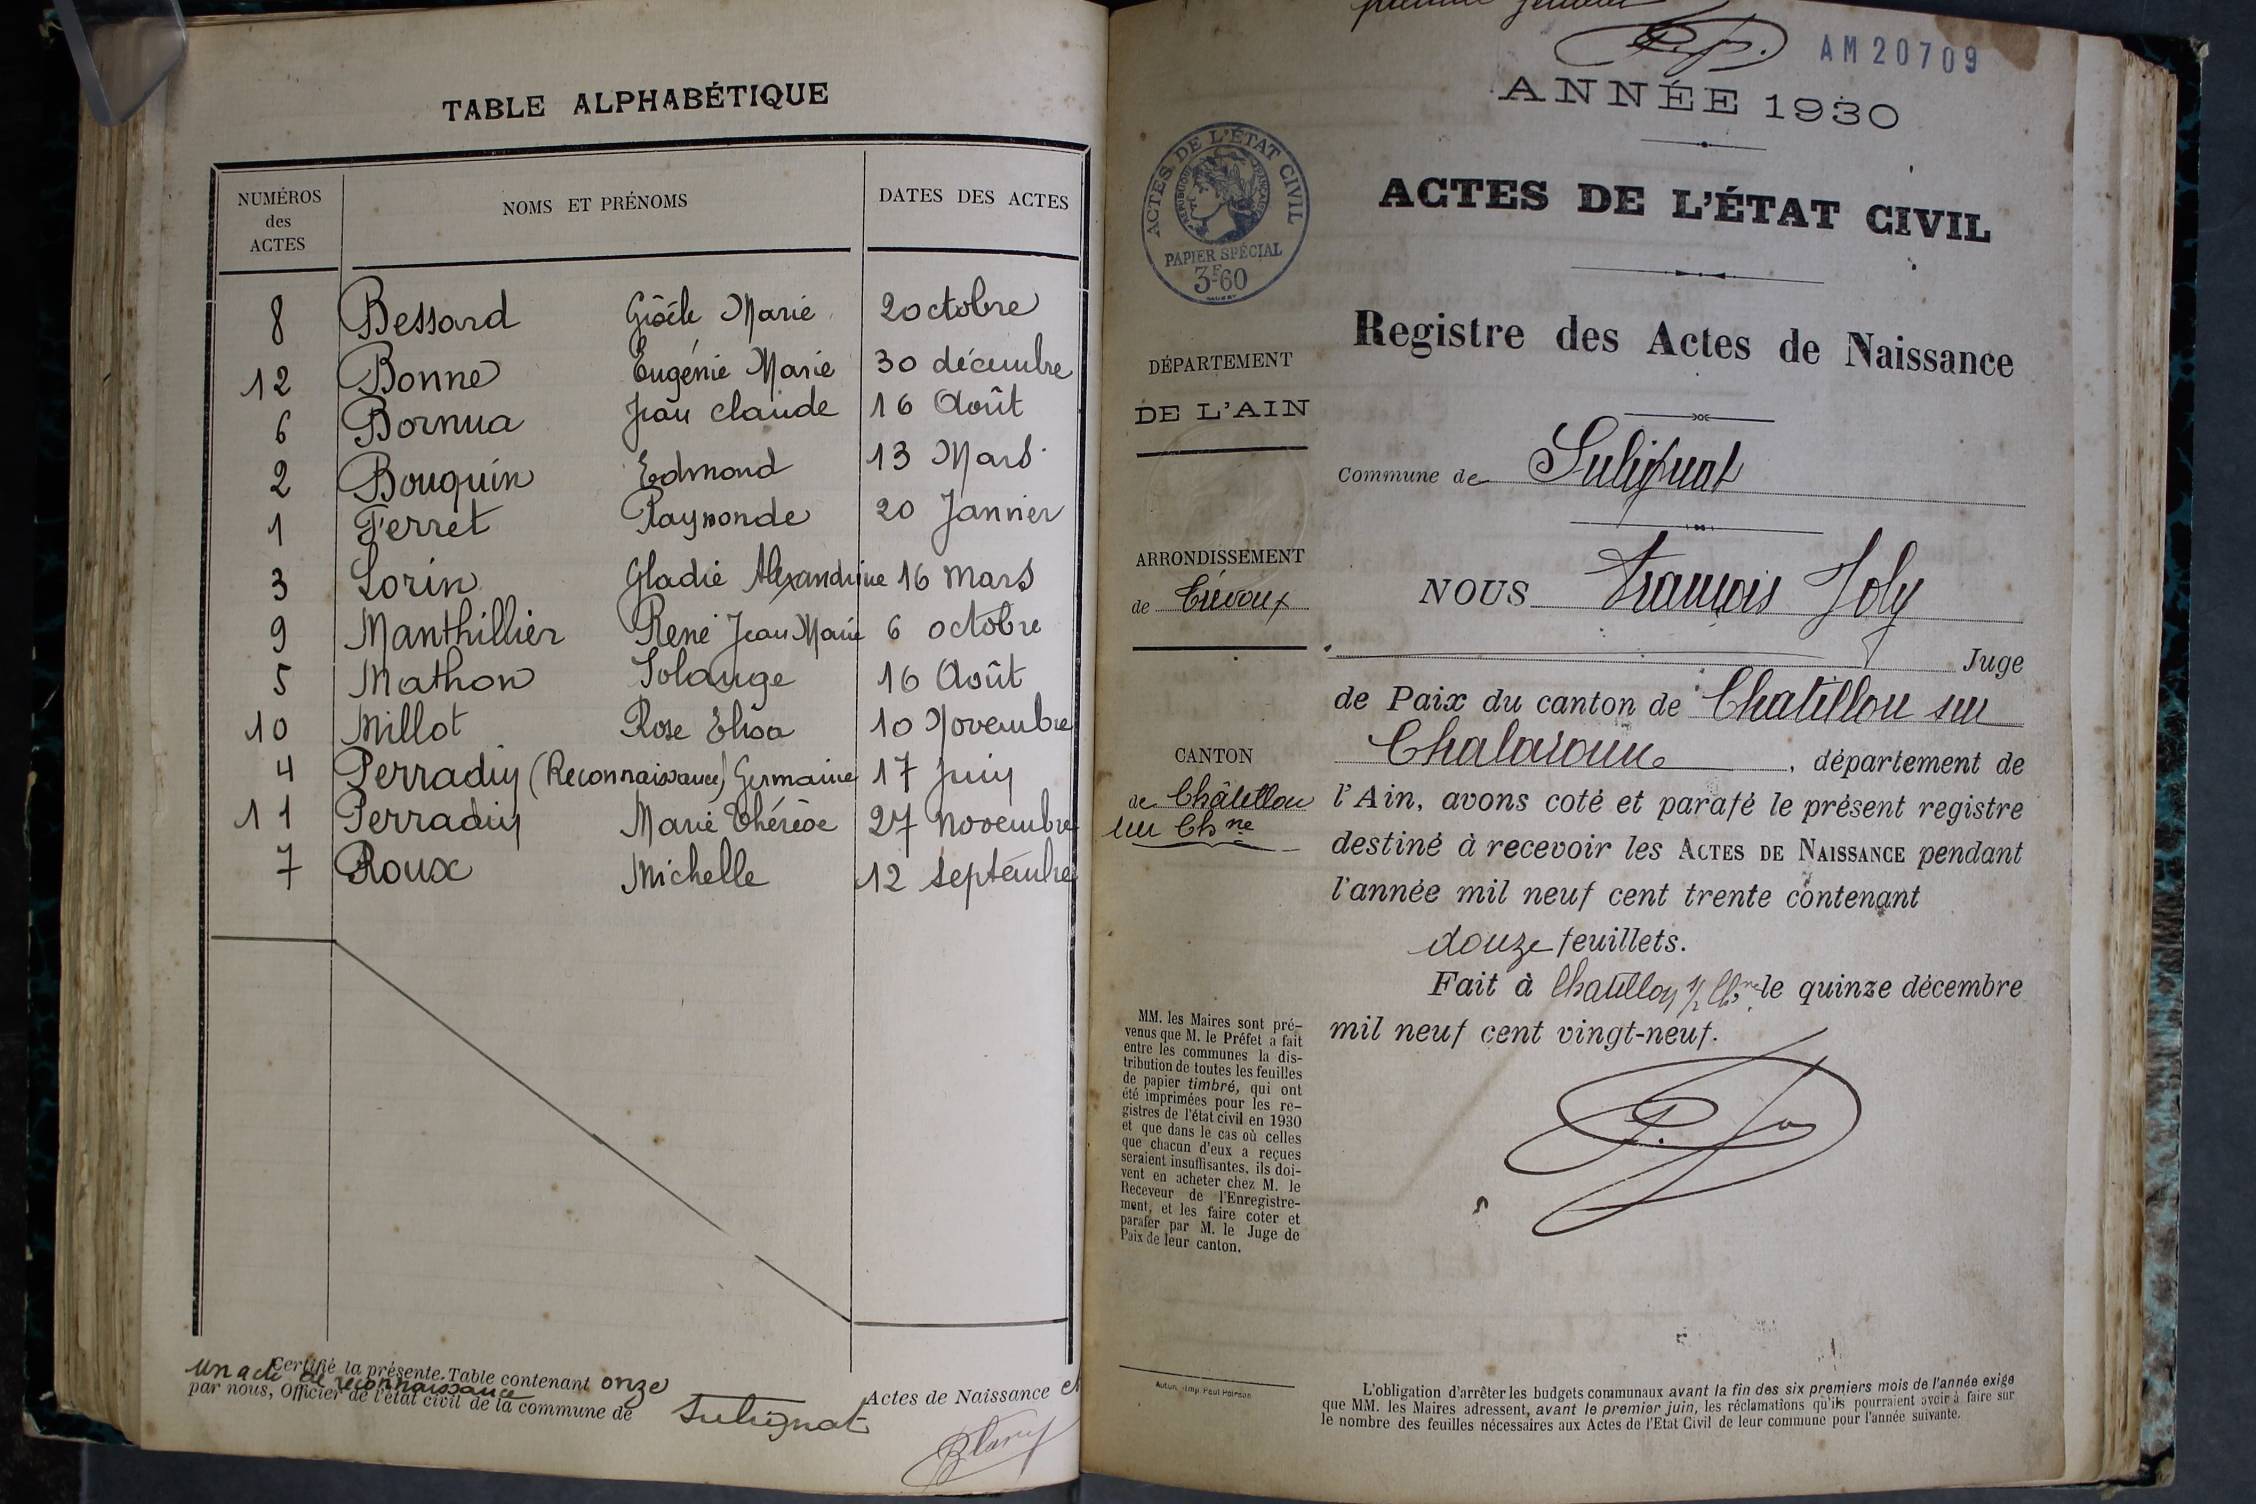 TABLE ALPHABÉTIQUE
NUMÉROS des ACTES NOMS ET PRÉNOMS DATES DES ACTES
8 Bessard Gisèle Marie 2 octobre
12 Bonne Eugénie Marie 30 décembre
6 Bornua Jean Claude 16 Août
2 Bouquin Edmond 13 Mars
1 Ferret Raymonde 20 Janvier
3 Lorin Gladie Alexandrine 16 Mars
9 Manthillier René Jean Marie 6 octobre
5 Mathon Solange 16 Août
10 Millot Rose Elisa 10 Novembre
4 Perradin (Reconnaissance) Germaine 17 Juin
11 Perradin Marie Thérèse 27 novembre
7 Roux Michelle 12 septembre
Certifié la présente Table contenant onze Actes de Naissance et
un acte de reconnaissance
par nous, Officier de l'état civil de la commune de Sulignat
AM 20709
ANNÉE 1930
ACTES DE L'ÉTAT CIVIL
ACTES DE L'ÉTAT CIVIL
RÉPUBLIQUE FRANÇAISE
PAPIER SPÉCIAL
3F60
Registre des Actes de Naissance
DÉPARTEMENT
DE L'AIN
Commune de Sulignat
ARRONDISSEMENT
de Trévoux
CANTON
de Châtillon
sur Chne
NOUS François Joly
Juge
de Paix du canton de Chatillon sur
Chalaronne, département de
l'Ain, avons coté et parafé le présent registre
destiné à recevoir les ACTES DE NAISSANCE pendant
l'année mil neuf cent trente contenant
douze feuillets.
Fait à Chatillon s/ Chne le quinze décembre
mil neuf cent vingt-neuf.
MM. les Maires sont pré-
venus que M. le Préfet a fait
entre les communes la dis-
tribution de toutes les feuilles
de papier timbré, qui ont
été imprimées pour les re-
gistres de l'état civil en 1930
et que dans le cas où celles
que chacun d'eux a reçues
seraient insuffisantes, ils doi-
vent en acheter chez M. le
Receveur de l'Enregistre-
ment, et les faire coter et
parafer par M. le Juge de
Paix de leur canton.
Autun, Imp. Paul
L'obligation d'arrêter les budgets communaux avant la fin des six premiers mois de l'année exige
que MM. les Maires adressent, avant le premier juin, les réclamations qu'ils pourraient avoir à faire sur
le nombre des feuilles nécessaires aux Actes de l'Etat Civil de leur commune pour l'année suivante.